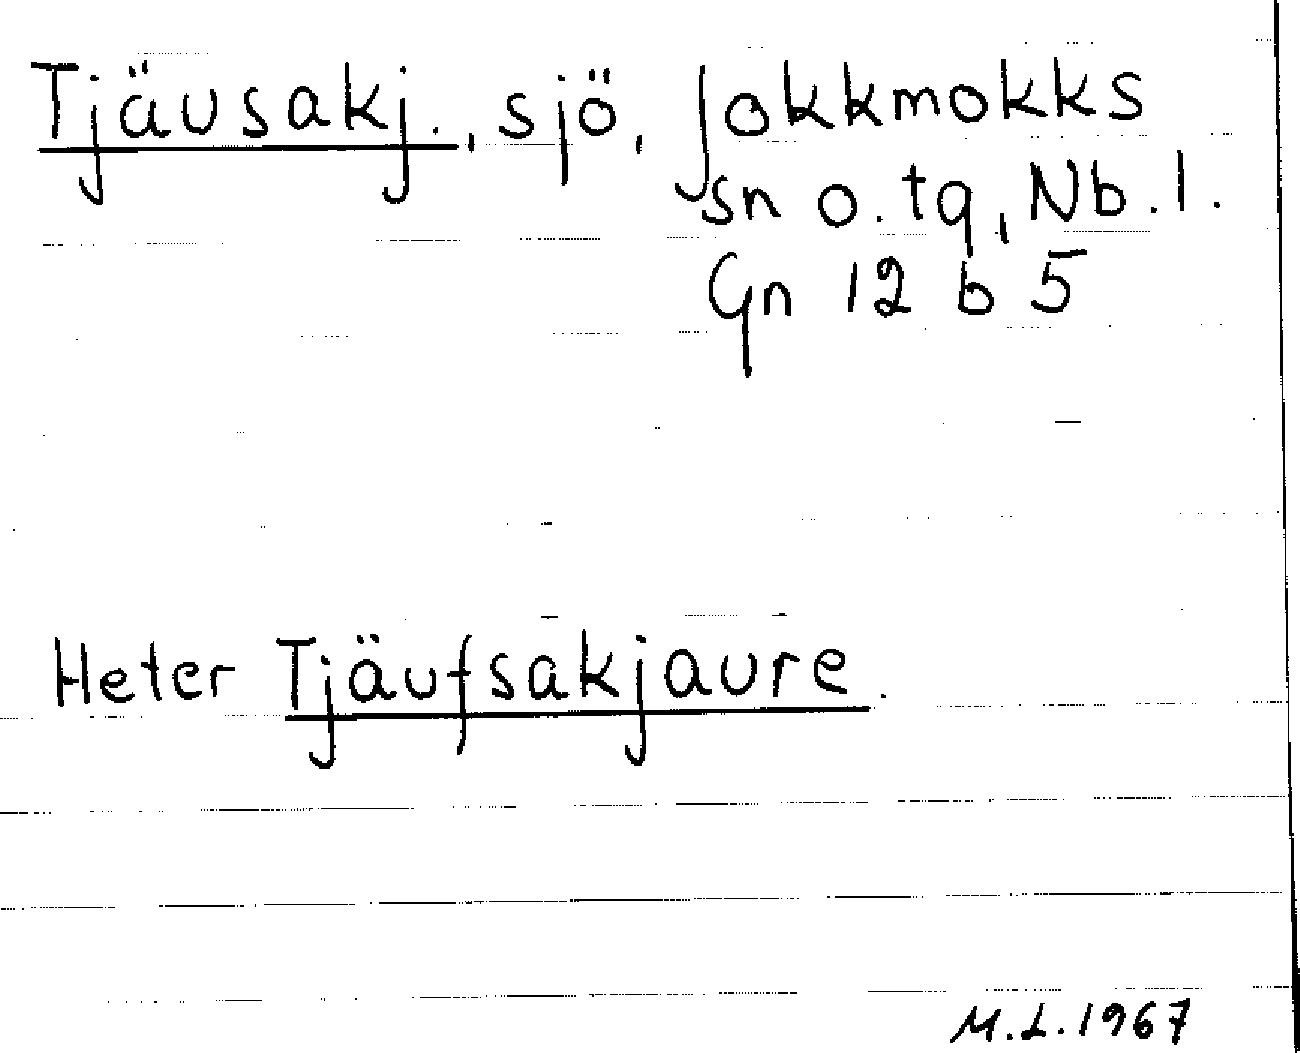 Tjäusakj., sjö, Jokkmokks
sn o. tg, Nb. l.
Gn 12 b 5
Heter Tjäufsakjaure.
M.L. 1967